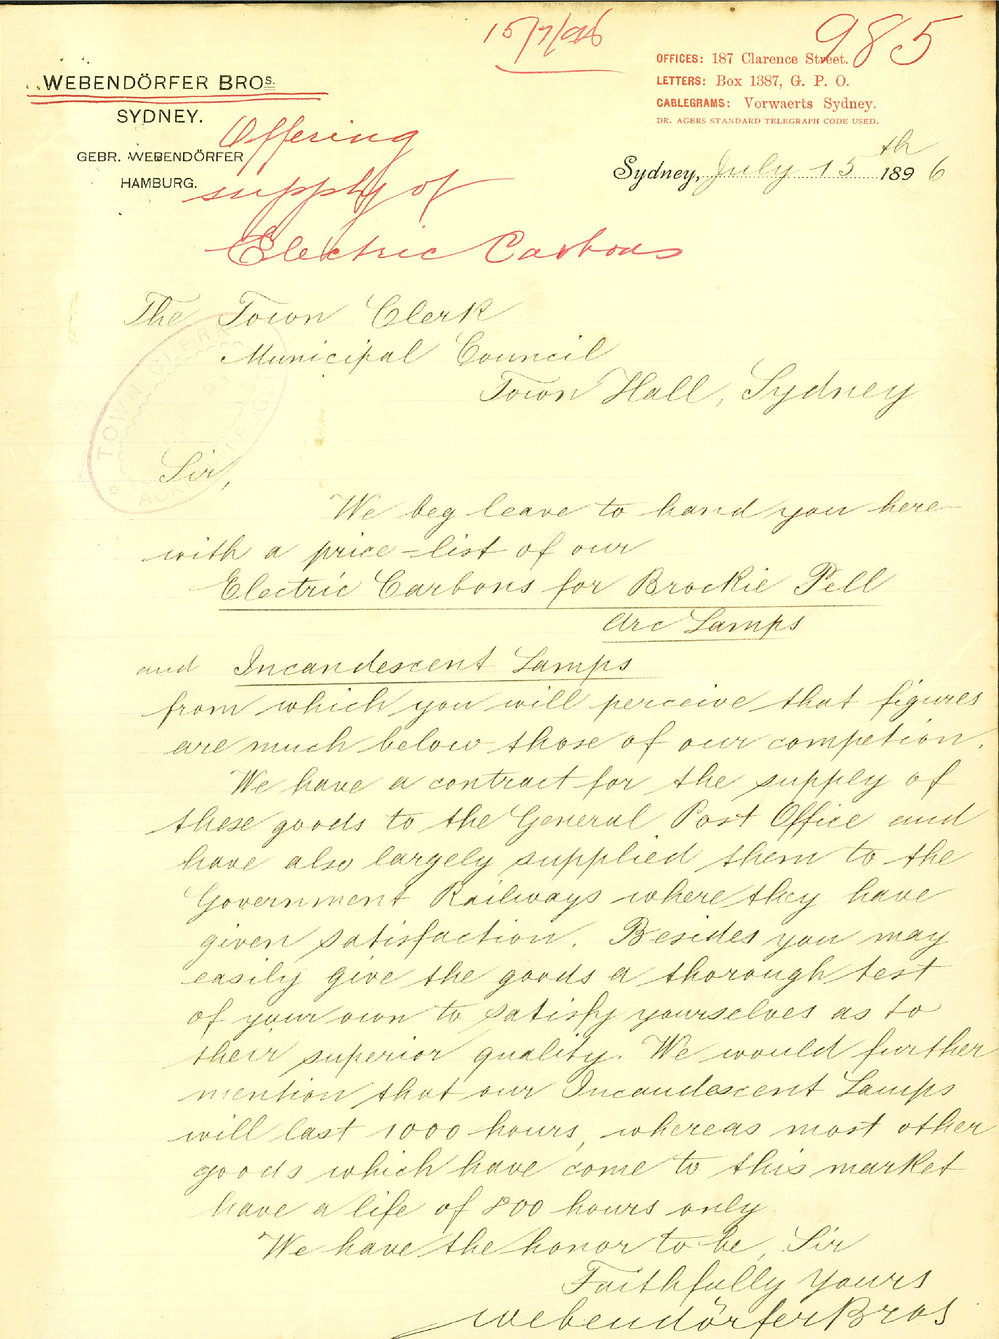 15/7/96
985
WEBENDÖRFER BROS.
SYDNEY.
GEBR. WEBENDÖRFER
HAMBURG.
OFFICES: 187 Clarence Street.
LETTERS: Box 1387, G. P. O.
CABLEGRAMS: Vorwaerts Sydney.
DR. AGERS STANDARD TELEGRAPH CODE USED.
Offering
supply of
Electric Carbons
Sydney, July 15th 1896
The Town Clerk
Municipal Council
Town Hall, Sydney
TOWN CLERK
Sir,
We beg leave to hand you here-
with a price-list of our
Electric Carbons for Brockie Pell
Arc Lamps
and Incandescent Lamps
from which you will perceive that figures
are much below those of our competion.
We have a contract for the supply of
these goods to the General Post Office and
have also largely supplied them to the
Government Railways where they have
given satisfaction. Besides you may
easily give the goods a thorough test
of your own to satisfy yourselves as to
their superior quality. We would further
mention that our Incandescent Lamps
will last 1000 hours, whereas most other
goods which have come to this market
have a life of 800 hours only
We have the honor to be, Sir
Faithfully Yours
Webendörfer Bros